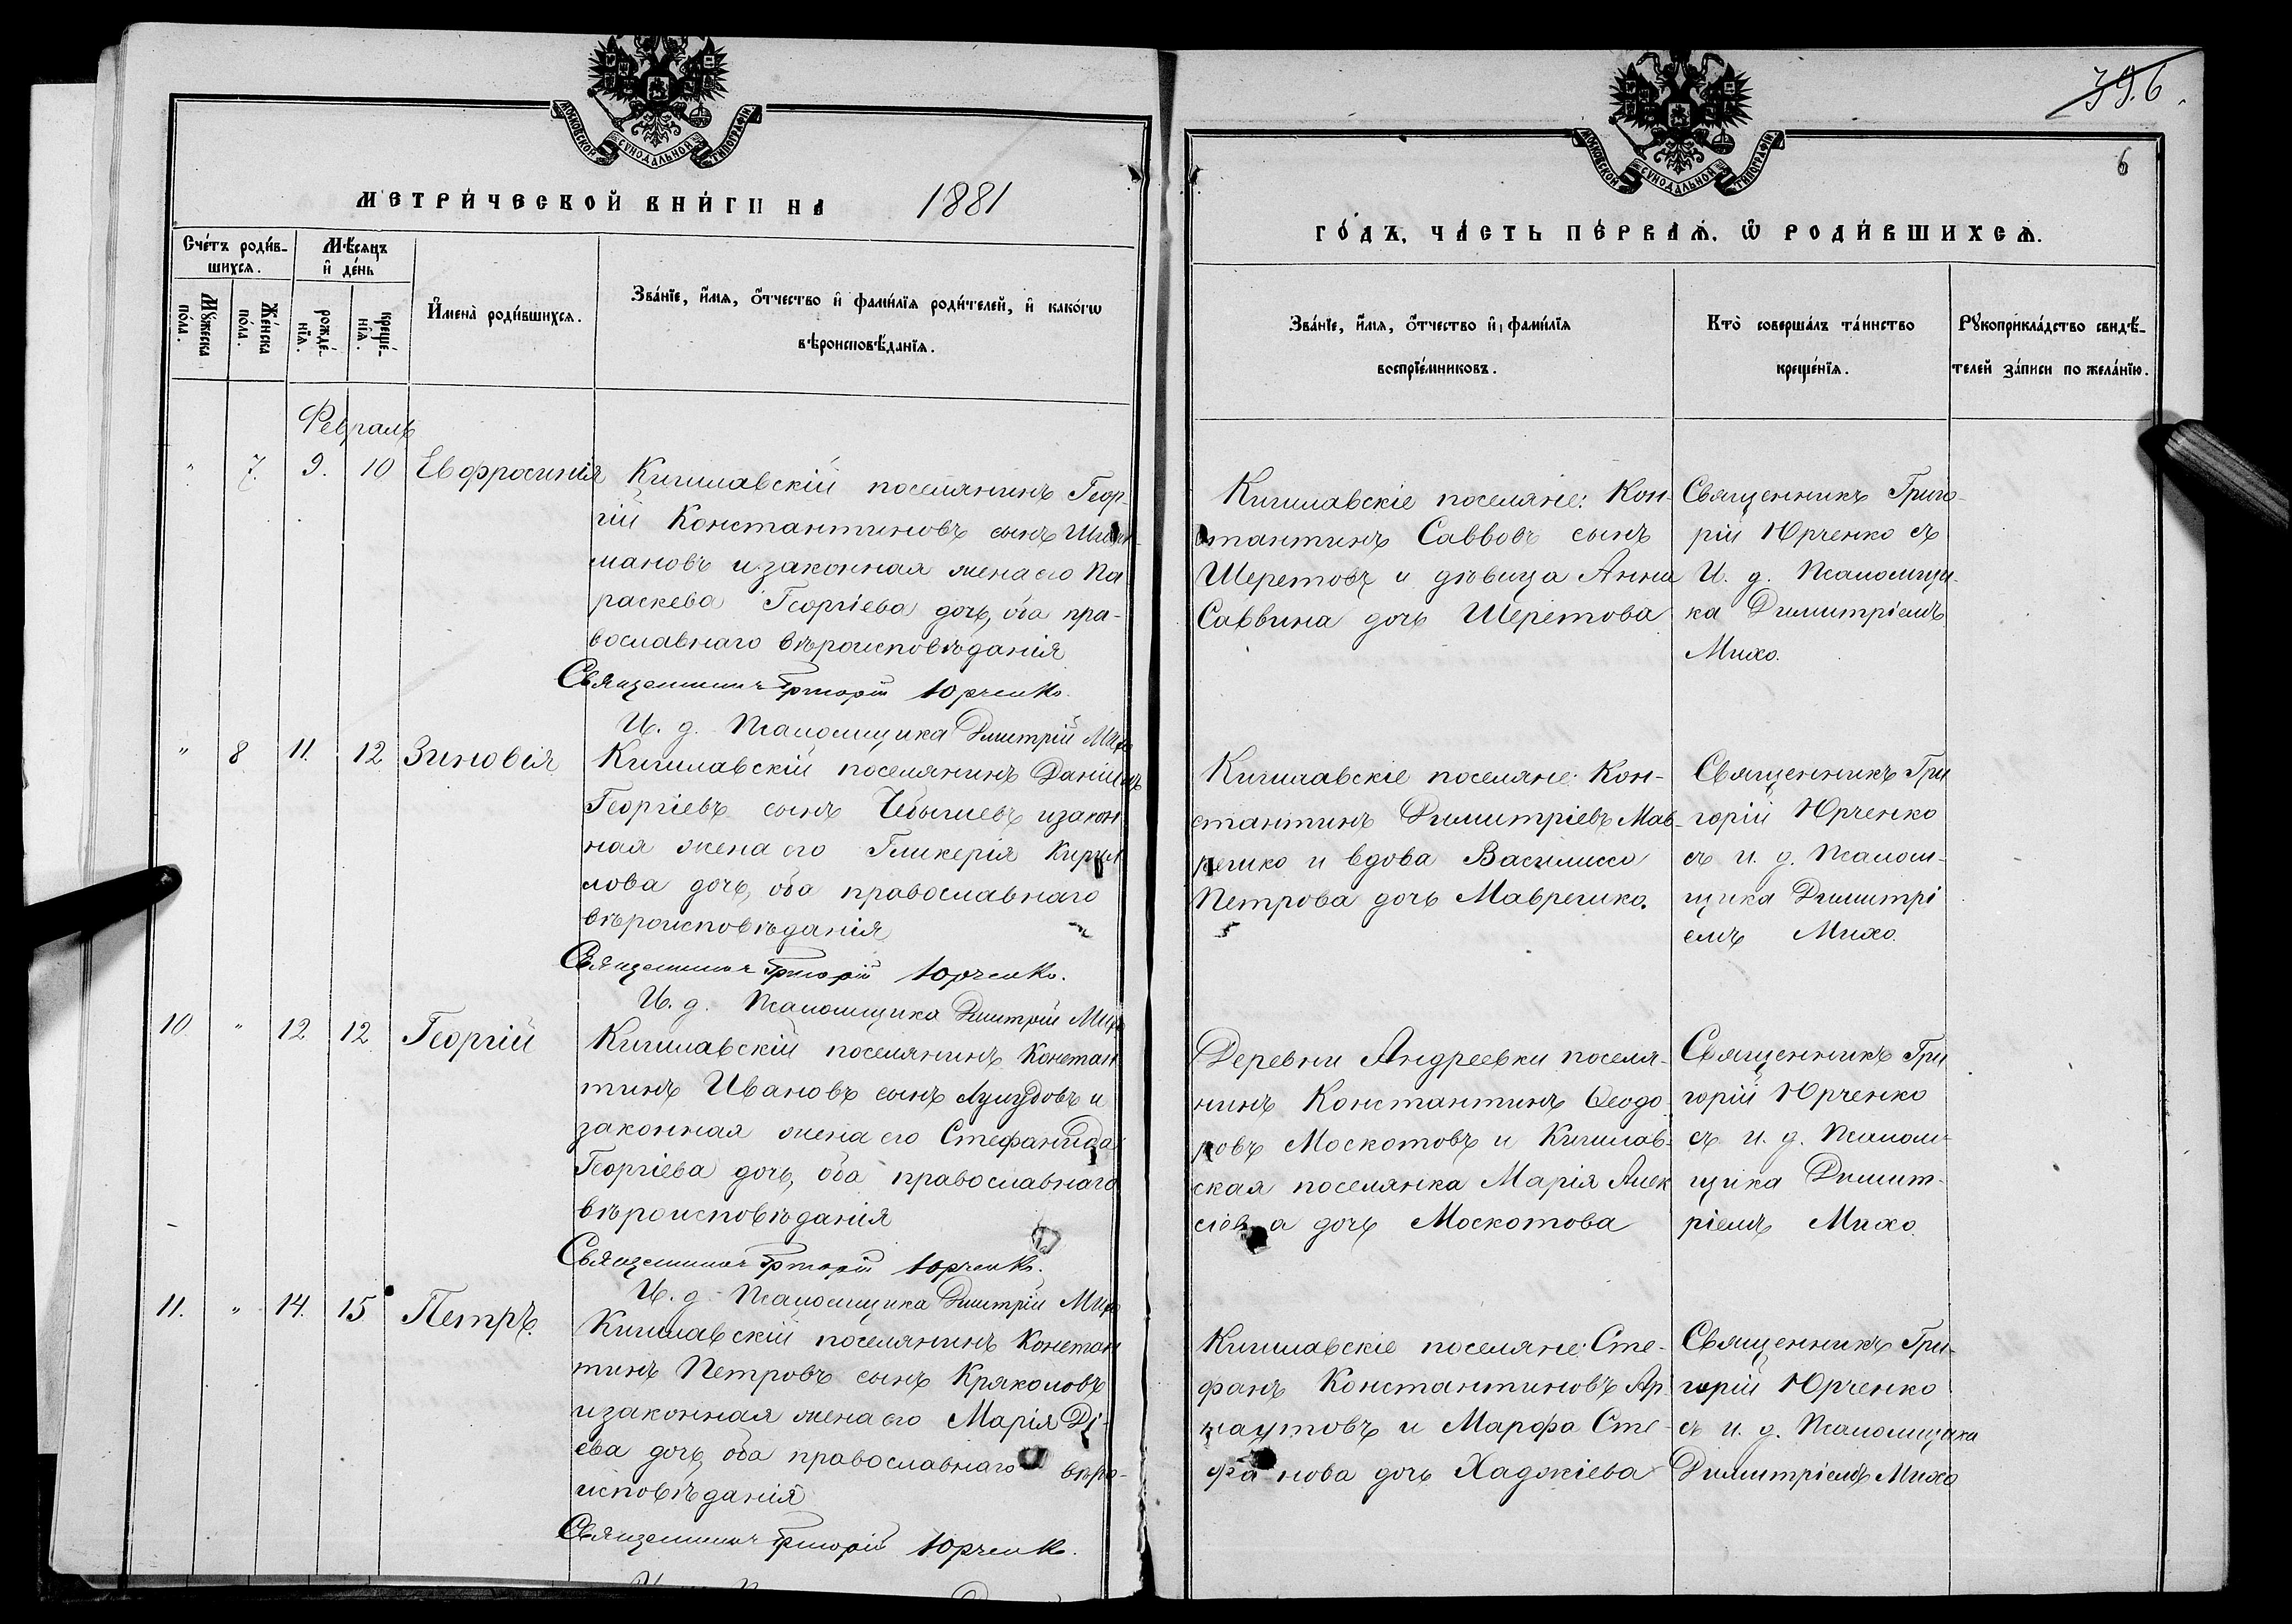 МОСКОВСКОЙ СѴНОДАЛЬНОЙ ТИПОГРАФІИ
МЕТРИ́ЧЕСКОЙ КНИ́ГИ НА 1881
Сче́тъ роди́в-
шихся.
Мѣ́сяцъ
и҆ де́нь
Мꙋ́жеска
по́ла.
Же́нска
по́ла.
рожде́-
нїѧ.
креще́-
нїѧ.
И҆мена̀ роди́вшихсѧ.
Зва́нїе, и҆́мѧ, ѻ҆́тчество и҆ фами́лїѧ роди́телей, и҆ како́гѡ
вѣроисповѣ́данїѧ.
Февраль
" 7. 9. 10 Евфросинія
Кишлавскій поселянинъ Геор-
гій Константиновъ сынъ
мановъ и законная жена его Па
раскева Георгіева дочь, оба пра-
вославнаго вѣроисповѣданія
Священникъ Григорій Юрченко.
И. д. Псаломщика Дмитрій Михо
" 8 11. 12 Зиновія
Кишлавскій поселянинъ Даніилъ
Георгіевъ сынъ Чебышевъ и закон
ная жена его Гликерія Кирил
лова дочь, оба православнаго
вѣроисповѣданія
Священникъ Григорій Юрченко.
И. д. Псаломщика Дмитрій Михо
10 " 12 12 Георгій
Кишлавскій поселянинъ Констан
тинъ Ивановъ сынъ и
законная жена его Стефанида
Георгіева дочь, оба православнаго
вѣроисповѣданія
Священникъ Григорій Юрченко.
И. д. Псаломщика Дмитрій Михо
11. " 14. 15 Петръ.
Кишлавскій поселянинъ Констан
тинъ Петровъ сынъ Кряколовъ
и законная жена его Марія Ді-
ева дочь, оба православнаго вѣро-
исповѣданія
Священникъ Григорій Юрченко.
396.
6
МОСКОВСКОЙ СѴНОДАЛЬНОЙ ТИПОГРАФІИ
ГО́ДЪ, ЧА́СТЬ ПЕ́РВАѦ, Ѡ҆ РОДИ́ВШИХСѦ.
Зва́нїе, и҆́мѧ, ѻ҆́тчество и҆ фами́лїѧ
воспрїе́мниковъ.
Кто̀ соверша́лъ та́инство
креще́нїѧ.
Рꙋкоприкла́дство свидѣ́-
телей за́писи по жела́нїю.
Кишлавскіе поселяне: Кон-
стантинъ Саввовъ сынъ
Шеретовъ и дѣвица Анна
Саввина дочь Шеретова
Священникъ Григо-
рій Юрченко съ
И. д. Псаломщи-
ка Димитріемъ
Михо.
Кишлавскіе поселяне: Кон-
стантинъ Димитріевъ Мав-
решко и вдова Василисса
Петрова дочь Маврешко.
Священникъ Гри
горій Юрченко
съ и. д. Псалом-
щика Димитрі
емъ Михо.
Деревни Андреевки поселя-
нинъ Константинъ Ѳеодо-
ровъ Москотовъ и Кишлав-
ская поселянка Марія Алек
сіева дочь Москотова
Священникъ Гри
горій Юрченко
съ и. д. Псалом-
щика Димит-
ріемъ Михо.
Кишлавскіе поселяне: Сте-
фанъ Константиновъ Ар-
наутовъ и Марфа Сте-
фанова дочь Хаджіева
Священникъ Гри-
горій Юрченко
съ и. д. Псаломщика
Димитріемъ Михо